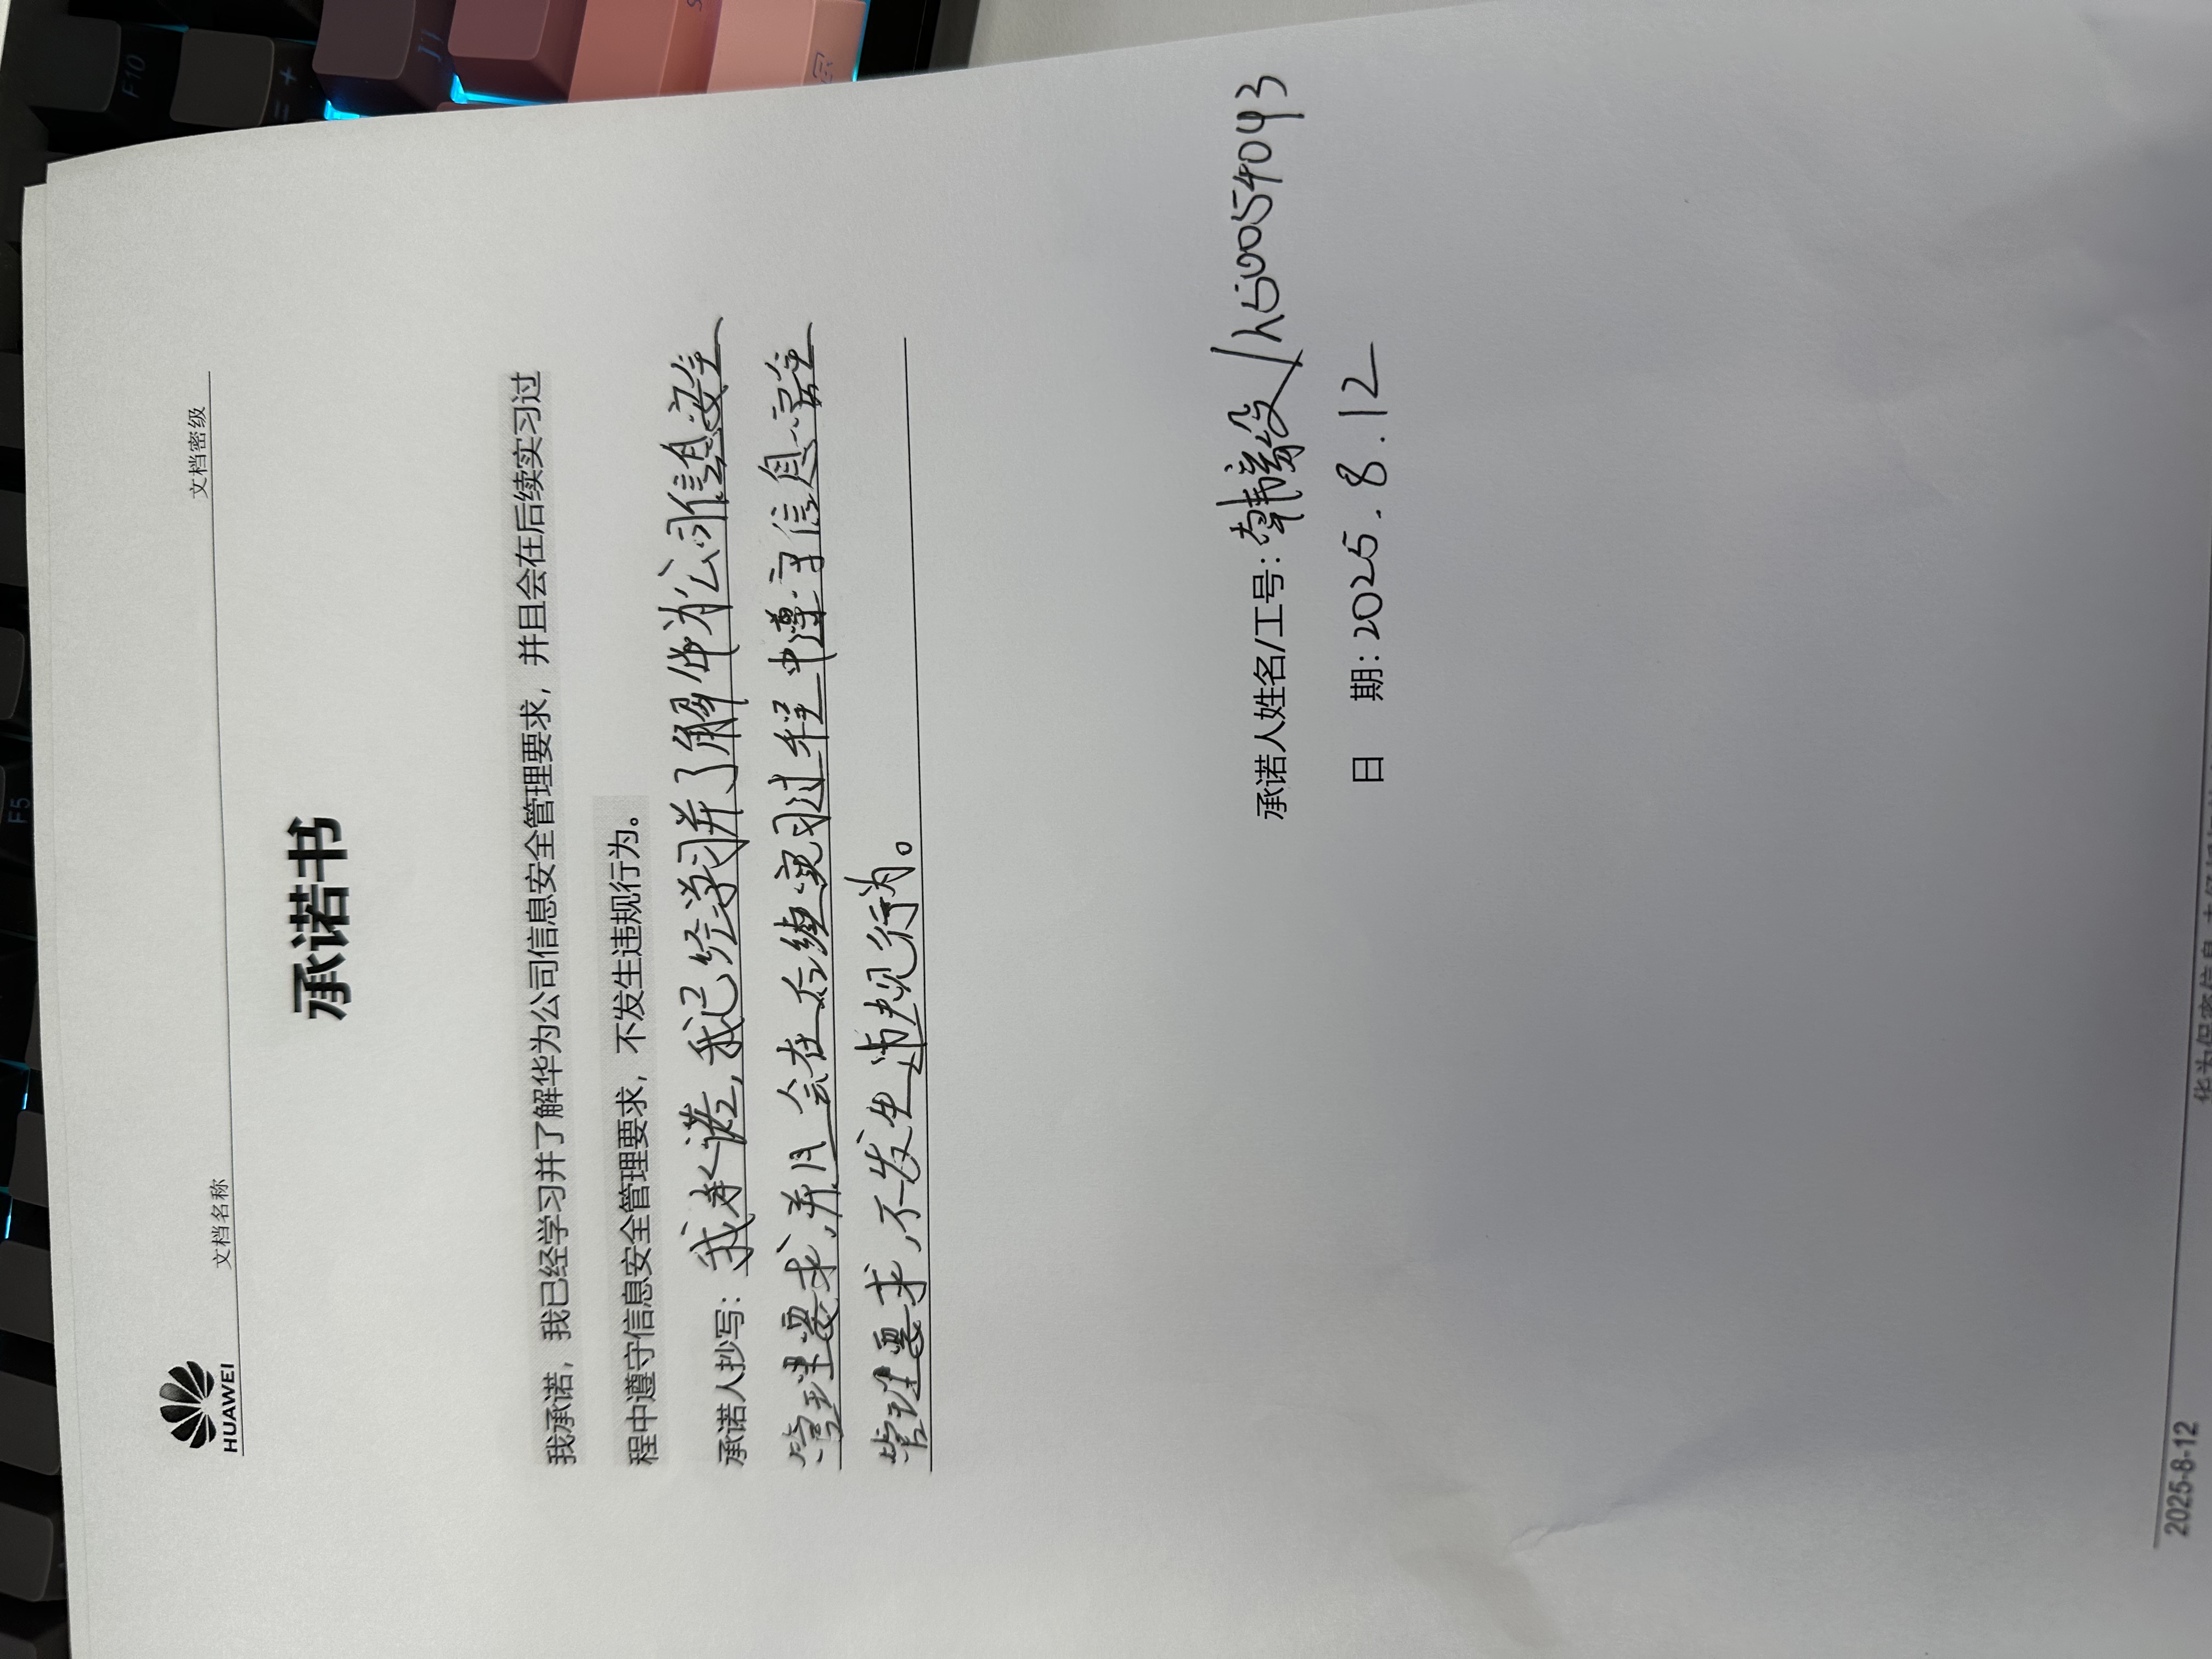 F5
F10
= +
HUAWEI 文档名称 文档密级
承诺书
我承诺，我已经学习并了解华为公司信息安全管理要求，并且会在后续实习过
程中遵守信息安全管理要求，不发生违规行为。
承诺人抄写：我承诺，我已经学习并了解华为公司信息安全
管理要求，并且会在后续实习过程中遵守信息安全
管理要求，不发生违规行为。
承诺人姓名/工号：韩 /h50054093
日 期：2025.8.12
2025-8-12
华为保密信息